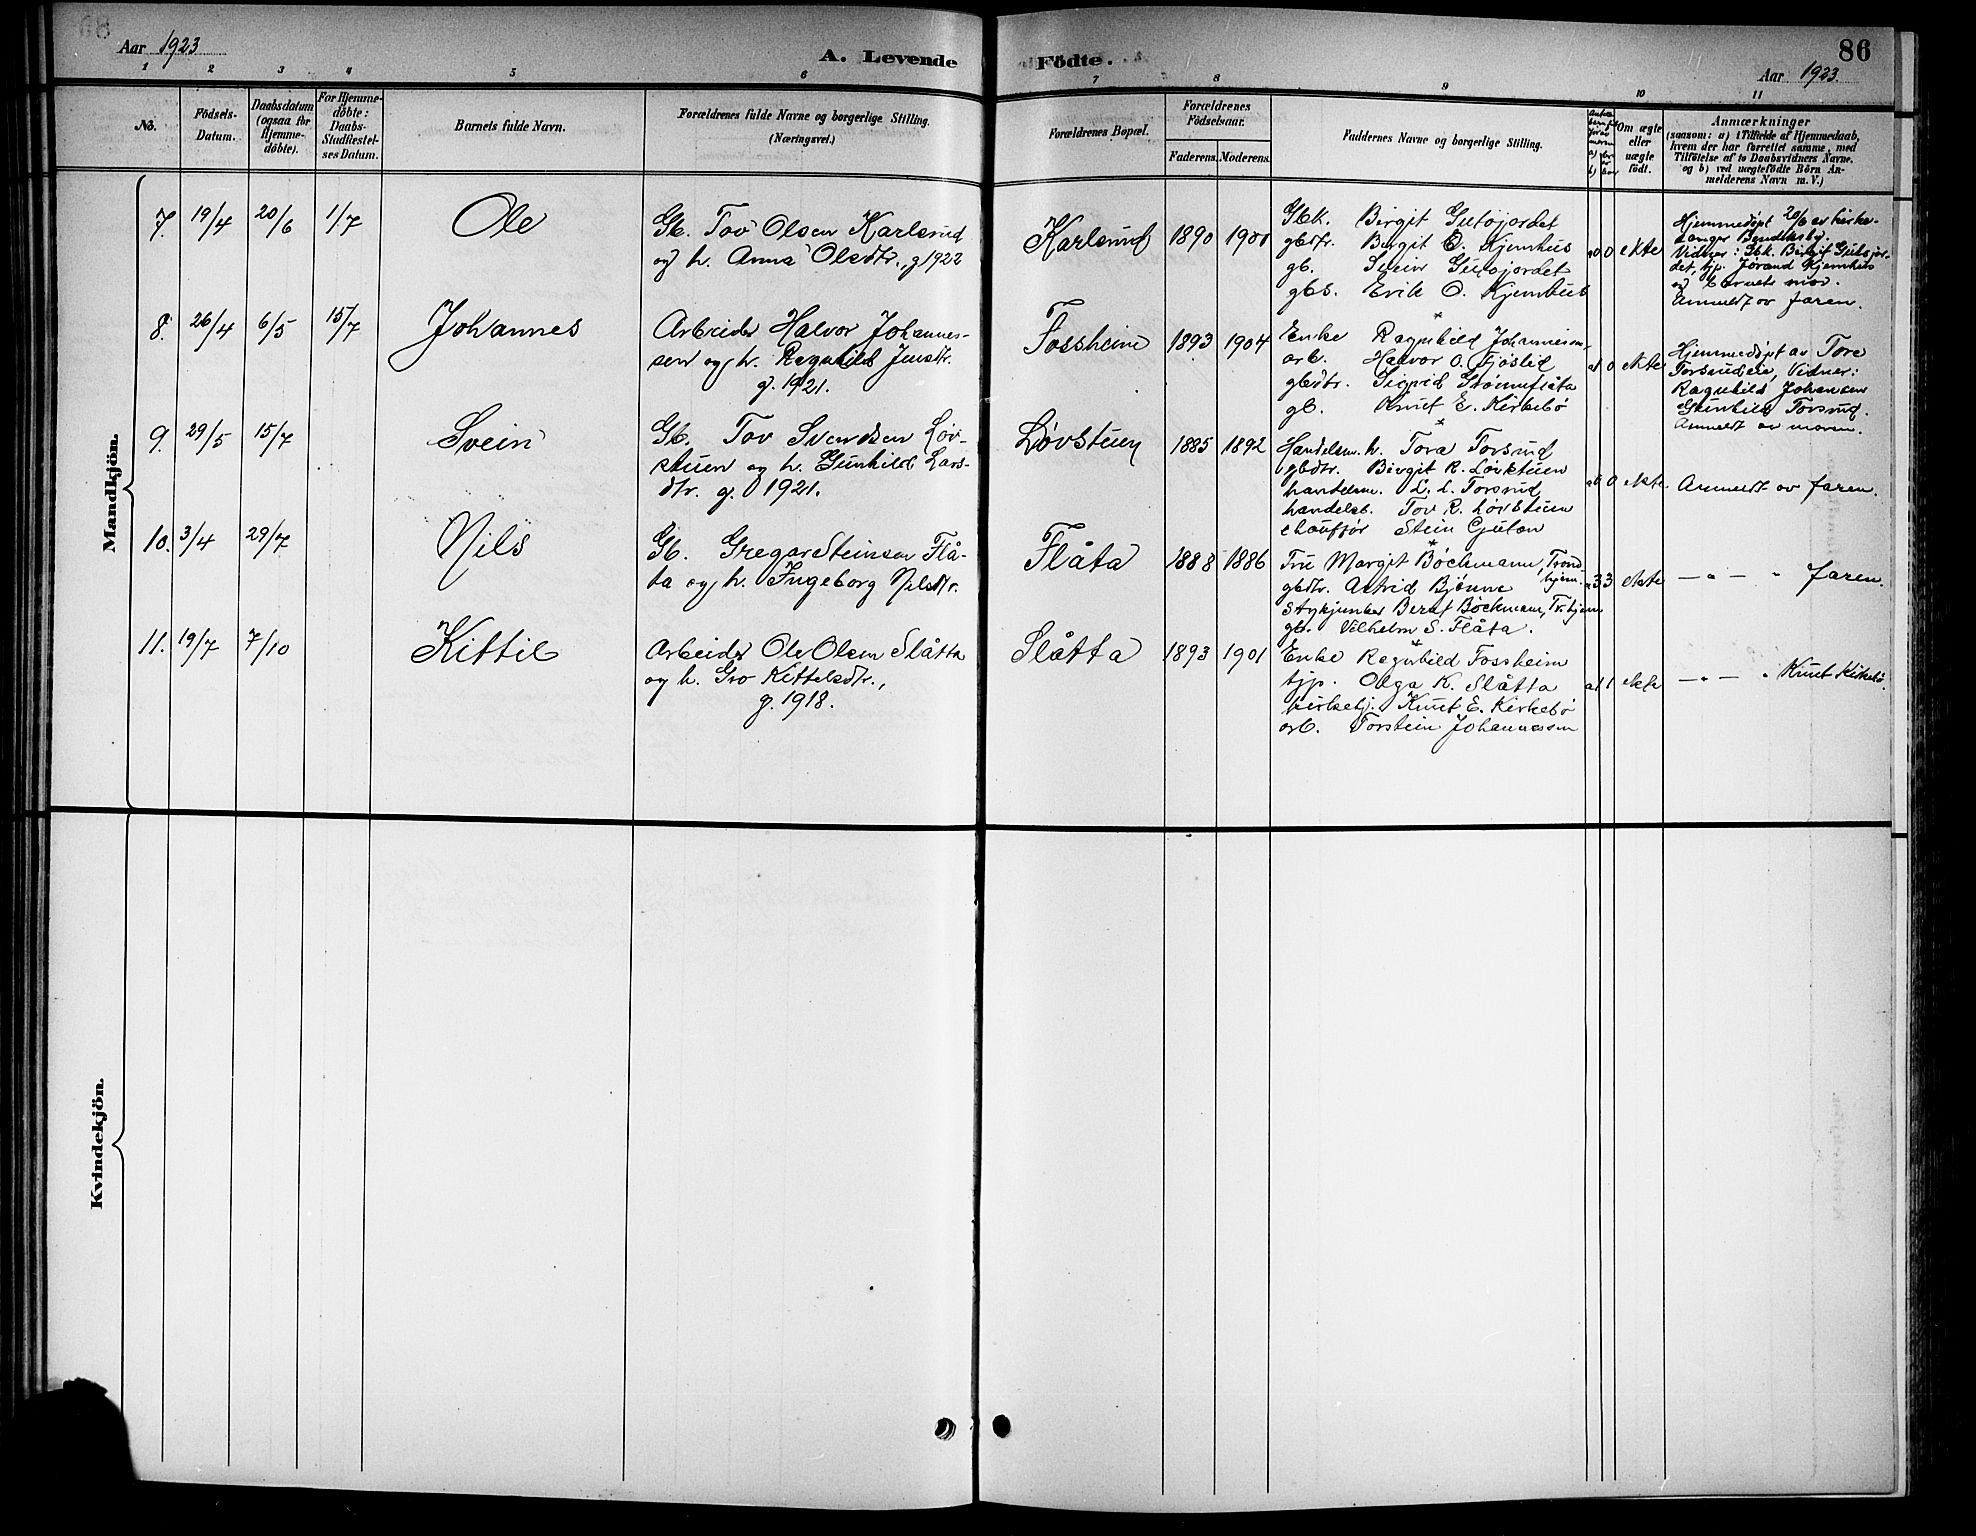 Aar 1923
A. Levende
Födte.
86
Aar 1923
1 2 3 4 5 6 7 8 9 10 11
No.
Födsels-
Datum.
Daabsdatum
(ogsaa for
Hjemme-
döbte).
For Hjemme-
döbte:
Daabs-
Stadfæstel-
ses Datum.
Barnets fulde Navn.
Forældrenes fulde Navne og borgerlige Stilling.
(Næringsvei.)
Forældrenes Bopæl.
Forældrenes
Födselsaar.
Faderens. Moderens.
Faddernes Navne og borgerlige Stilling.
Om ægte
eller
uægte
födt.
Anmærkninger
(saasom: a) i Tilfælde af Hjemmedaab,
hvem der har forrettet samme, med
Tilföielse af to Daabsvidners Navne.
og b) ved uægtefödte Börn An-
melderens Navn m. V.)
Mandkjön.
7. 19/4 20/6 1/7 Ole
Gb. Tov Olsen Karlsrud
og h. Anna Olsdtr., g 1922
Karlsrud 1890 1900
Gbk. Birgit Gutujordet
gbdtr. Birgit O. Kjemhus
gb. Svein Gutujordet
gbs. Erik O. Kjemhus
0 0 ekte
Hjemmedøpt 20/6 av kirke-
sanger Bendiksby.
Vidner: Gbk. Birgit Gutujor-
det, tjp. Jorand Kjemhus
og barnets mor.
Anmeldt av faren.
8. 26/4 6/5 15/7 Johannes
Arbeider Halvor Johannes-
sen og h. Ragnhild Jensdtr.
g. 1921.
Fossheim 1893 1904
Enke Ragnhild Johannessen
arb. Halvor O. Fjøslid
gbdtr. Sigrid Grønneflåta
gb. Knut E. Kirkebø
a1 0 ekte
Hjemmedøpt av Tore
Torsrudeie, Vidner:
Ragnhild Johansen
Gunhild Torsrud.
Anmeldt av moren.
9. 29/5 15/7 Svein
Gb. Tov Svendsen Løv-
stuen og h. Gunhild Lars-
dtr. g. 1921.
Løvstuen 1885 1892
Handelsm. h. Tora Torsrud
gbdtr. Birgit R. Løvstuen
handelsm. L. L. Torsrud
handelsb. Tov R. Løvstuen
chauffør Stein Gjuton
0 ekte
Anmeldt av faren.
10. 3/4 29/7 Nils
Gb. Gregar Steinsen Flå-
ta og h. Ingeborg Nilsdtr.
Flåta 1888 1886
Fru Margit Bøckmann, Trond-
hjem.
gbdtr. Astrid Bjønne
Stykjunker Bernt Bøckmann, Tr.hjem
gb. Vilhelm S. Flåta.
3 3 ekte
— " — " faren.
11. 19/7 7/10 Kittil
Arbeider Ole Olsen Slåtta
og h. Gro Kittelsdtr.,
g. 1918.
Slåtta 1893 1901
Enke Ragnhild Fossheim
tjp. Olga K. Slåtta
kirketj. Knut E. Kirkebø
arb. Torstein Johannessen
a1 1 ekte
— " — " Knut Kirkebø.
Kvindekjön.